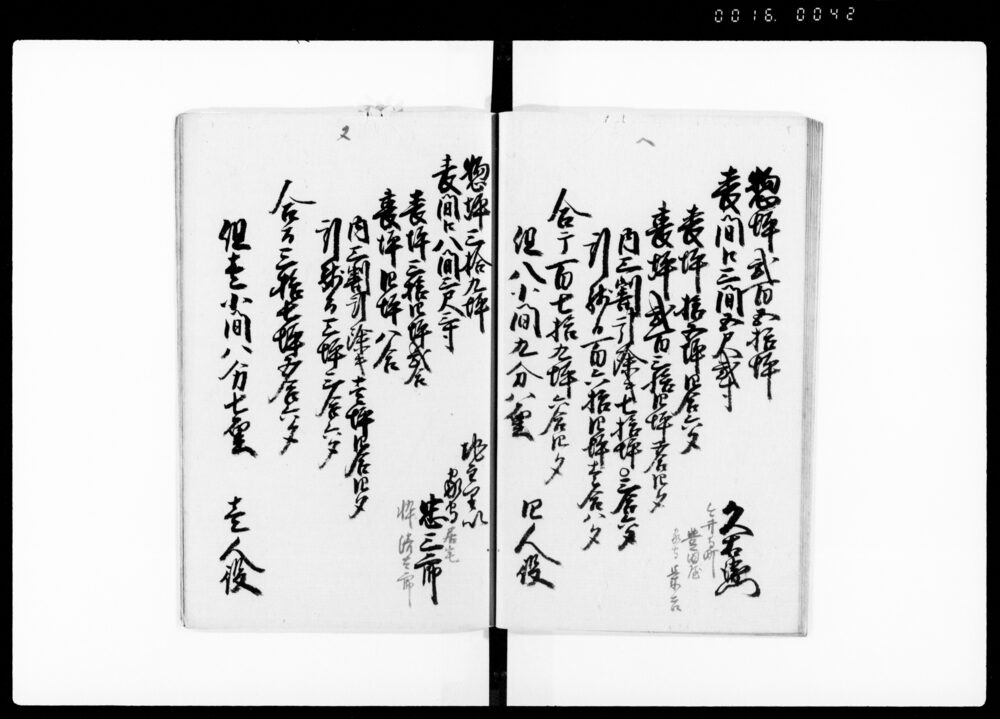 0016. 0042
惣坪弐百五拾坪
表間口三間五尺弐寸
表坪拾五坪四合六夕
裏坪弐百三拾四坪五合四夕
内三割引除キ七拾坪〇三合六夕
引残而百六拾四坪壱合八夕
合而百七拾九坪六合四夕
但八小間九分八厘
四人役
久右衛門
豊田屋
惣坪三拾九坪
表間口八間三尺三寸
表坪三拾四坪弐合
裏坪四坪八合
内三割引除キ壱坪四合四夕
引残而三坪三合六夕
合而三拾七坪五合六夕
但壱小間八分七厘
壱人役
家守
忠三郎
居宅